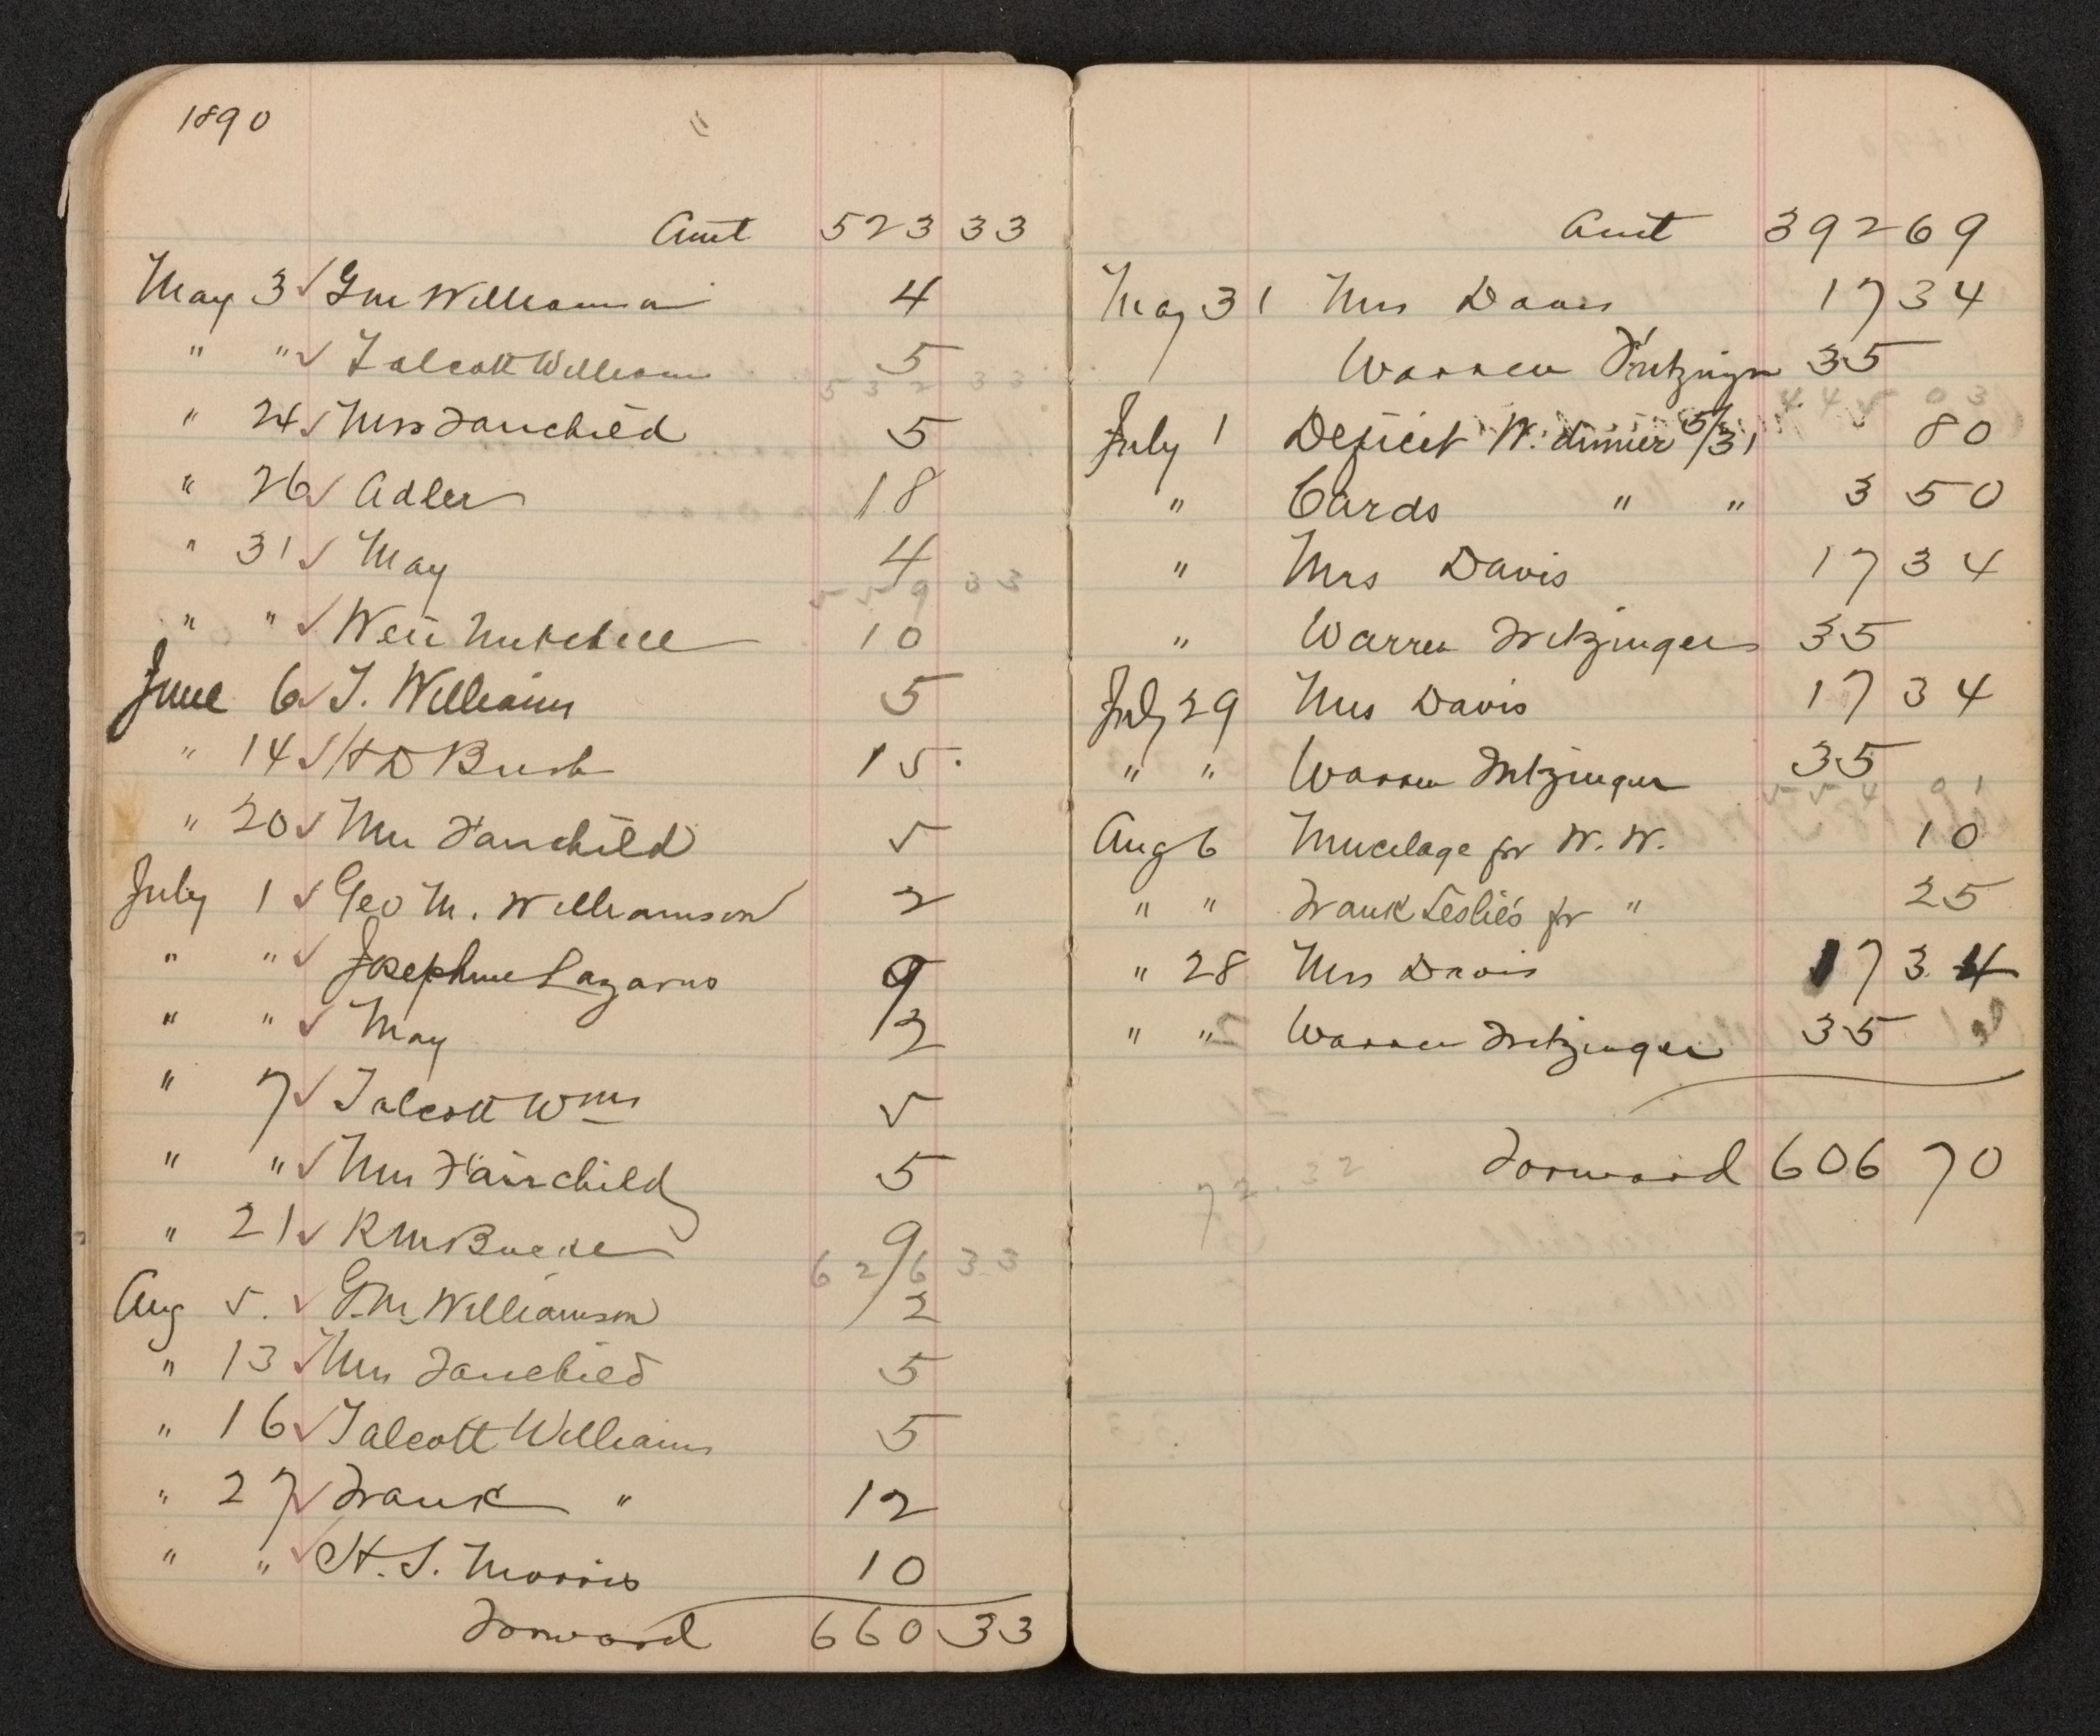 1890
"
Amt 523 33
May 3 ✓ G M Williamson 4
" " ✓ Talcott Williams 5
532 33
" 24 ✓ Mrs Fairchild 5
" 26 ✓ Adler 18
" 31 ✓ May 4
559 33
" " ✓ Weir Mitchell 10
June 6 ✓ T. Williams 5
" 14 ✓ H D Bush 15.
" 20 ✓ Mrs Fairchild 5
July 1 ✓ Geo M. Williamson 2
" " ✓ Josephine Lazarus 9
" " ✓ May 2
" 7 ✓ Talcott Wms 5
" " ✓ Mrs Fairchild 5
" 21 ✓ R M Bucke 9
626 33
Aug 5. ✓ G. M. Williamson 2
" 13 ✓ Mrs Fairchild 5
" 16 ✓ Talcott Williams 5
" 27 ✓ Frank " 12
" " ✓ H. S. Morris 10
Forward 660 33
Amt 392 69
May 31 Mrs Davis 17 34
Warren Fritzinger 35
445 03
July 1 Deficit W. dinner 5/31 80
" Cards " " 3 50
" Mrs Davis 17 34
" Warren Fritzinger 35
July 29 Mrs Davis 17 34
" " Warren Fritzinger 35
554 01
Aug 6 Mucilage for W. W. 10
" " Frank Leslie's for " 25
" 28 Mrs Davis 17 34
" " Warren Fritzinger 35
Forward 606 70
72.32